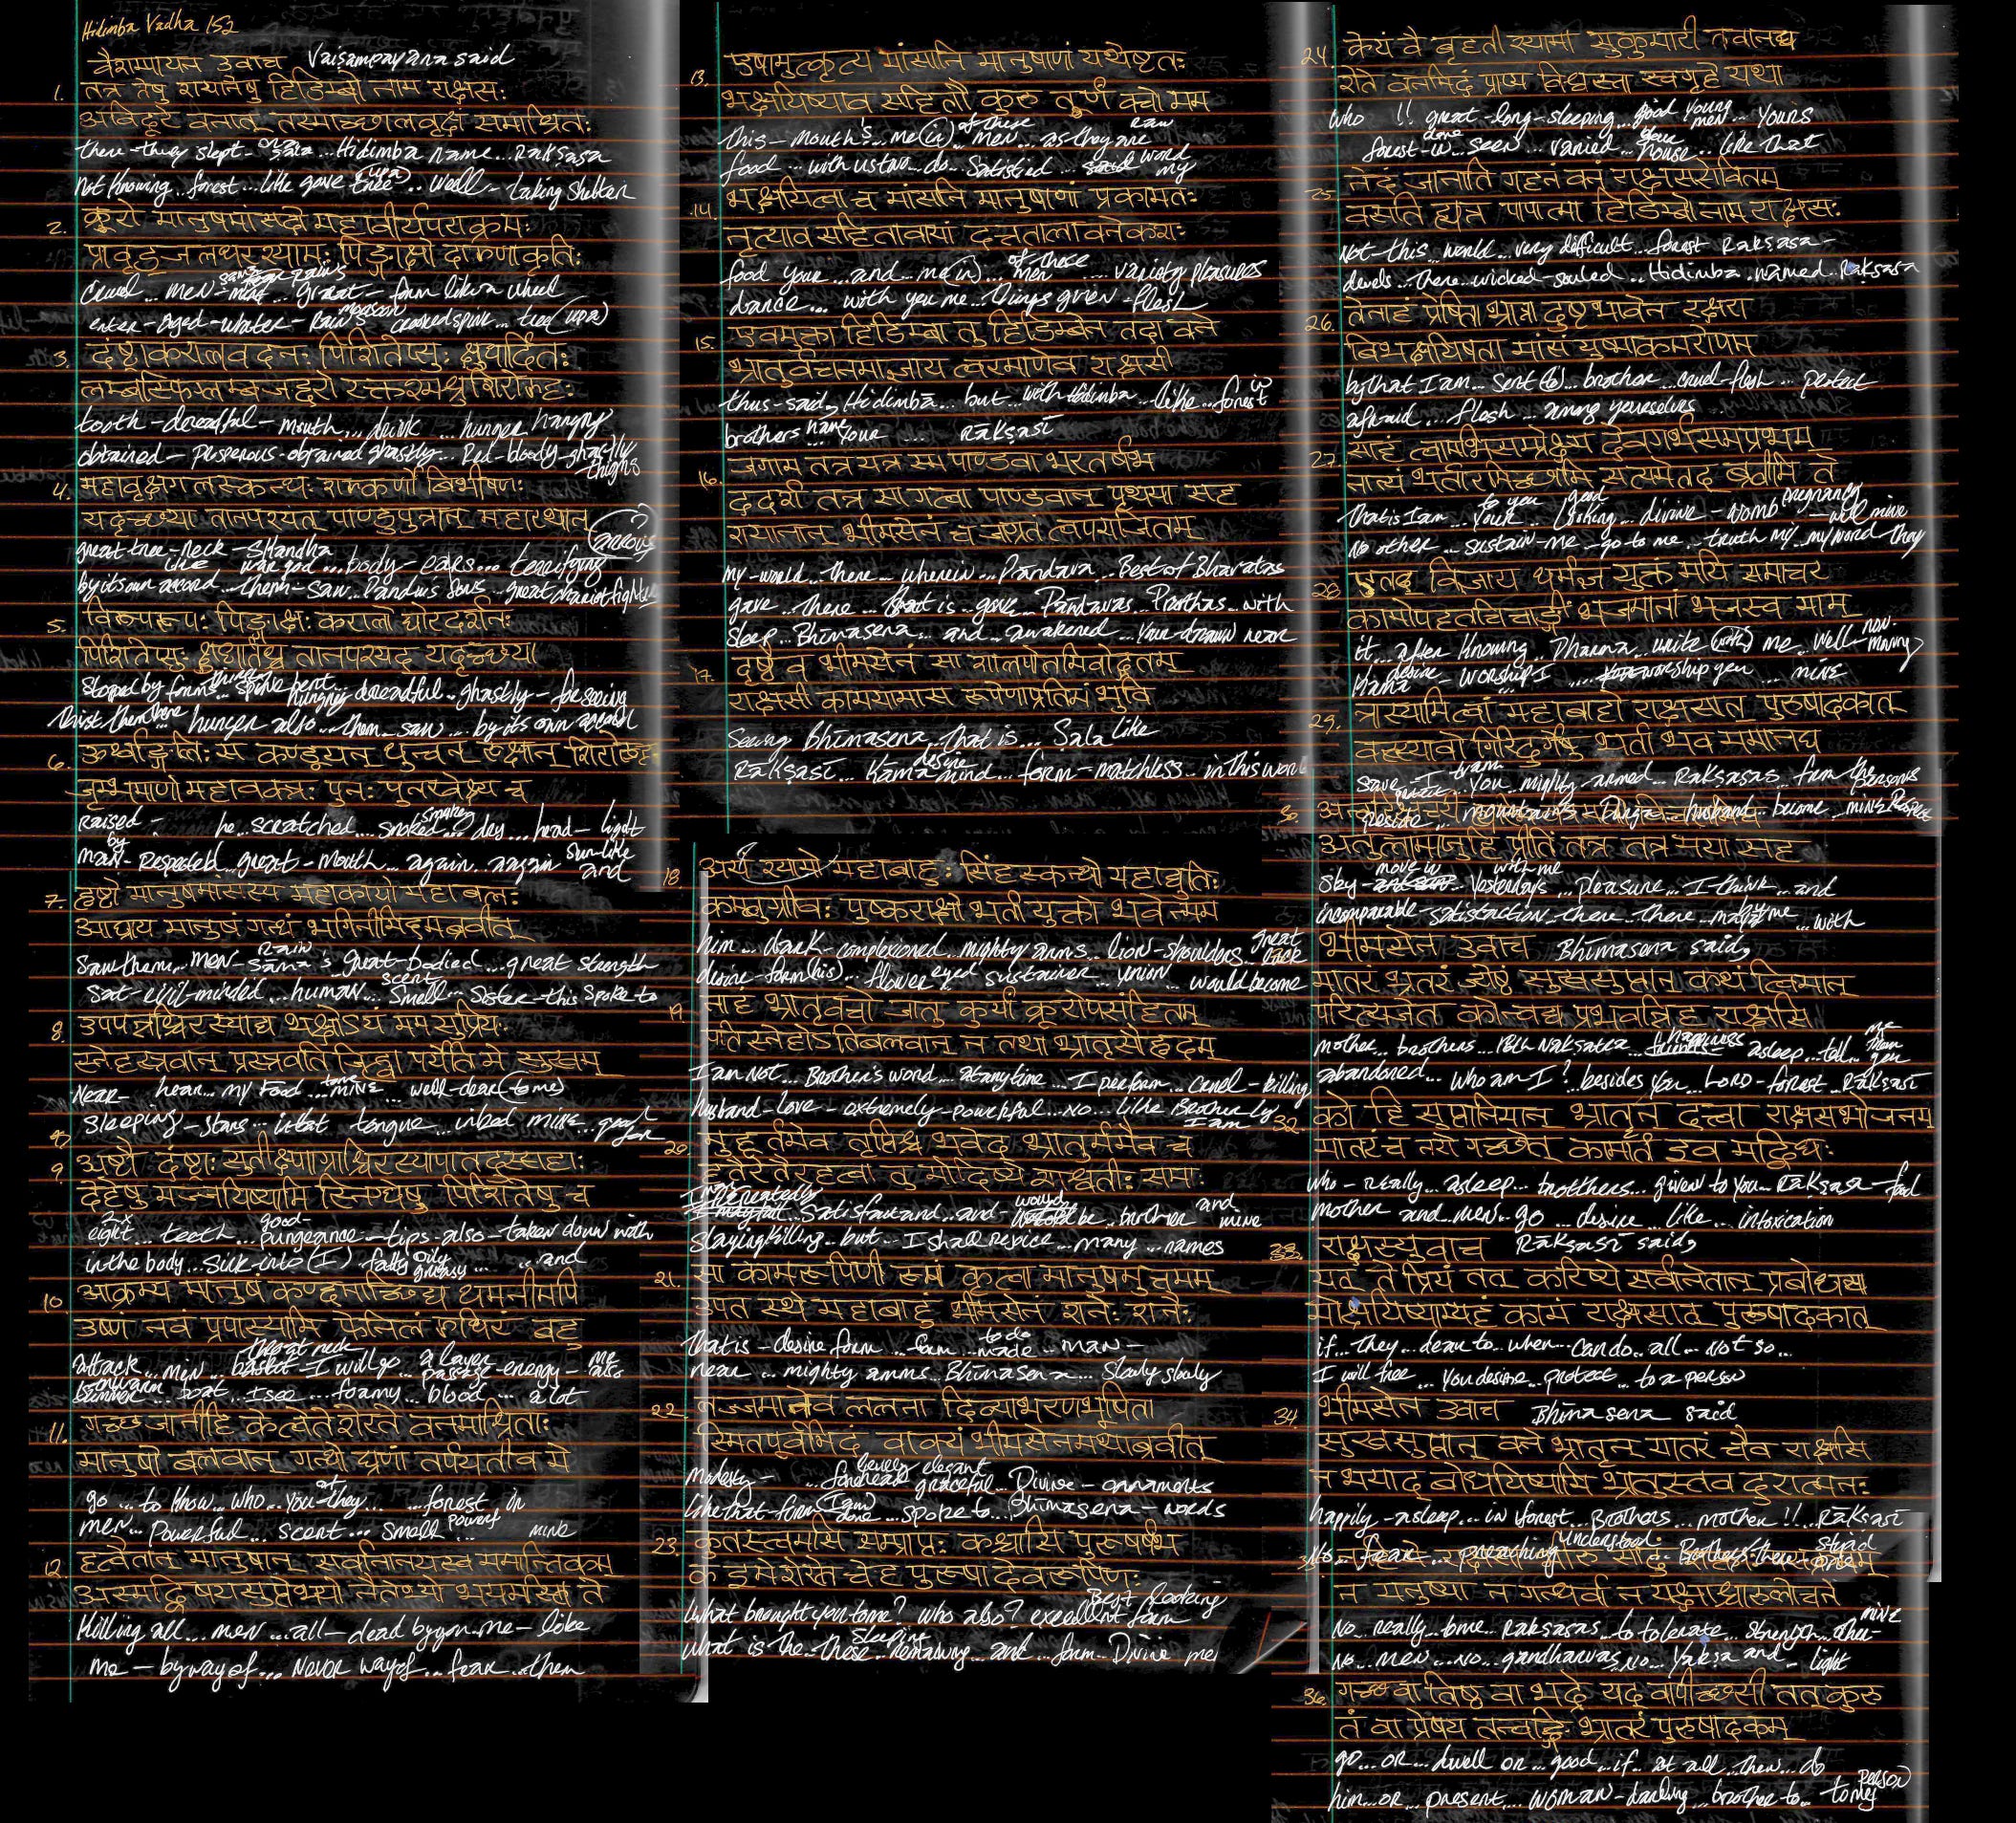 Hidimba Vadha 152
वैशम्पायन उवाच Vaiśampayana said
1. तत्र तेषु शयानेषु हिडिम्बो नाम राक्षसः
अविदूरे वनात् तस्माच्छालवृक्षं समाश्रितः
there-they slept- ... Hidimba name... Rākṣasa
not knowing... forest... like gave tree (up a)... well-taking shelter
2. क्रूरो मानुषमांसादो महावीर्यपराक्रमः
प्रावृड्जलधरश्यामः पिङ्गाक्षो दारुणाकृतिः
cruel... men- ... great- form like a wheel
enter-aged-water-Rain's monsoon crooked spink... tree (up a)
3. दंष्ट्राकरालवदनः पिशितेप्सुः क्षुधार्दितः
लम्बस्फिग्लम्बजठरो रक्तश्मश्रुशिरोरुहः
tooth-dreadful-mouth... drink... hunger hangry
obtained- prosperous-obtained ghastly... Red-bloody-ghastly thighs
4. महावृक्षगलस्कन्धः शङ्कुकर्णो बिभीषणः
यदृच्छया तानपश्यत् पाण्डुपुत्रान् महारथान्
great tree-neck-Skandha like war god... body-ears... terrifying (arrows?)
by its own accord... them-saw... Pandu's Sons... great chariot fighter
5. विरूपरूपः पिङ्गाक्षः करालो घोरदर्शनः
पिशितेप्सुः क्षुधार्तश्च तानपश्यद् यदृच्छया
Stoped by forms... spine bent... dreadful... ghastly-for seeing
thirst then there hunger also... them... saw... by its own accord
6. ऊर्ध्वाङ्गुलिः स कण्डूयन् धुन्वन् रुक्षान् शिरोरुहान्
जृम्भमाणो महावक्त्रः पुनः पुनरवेक्ष्य च
Raised- he... scratched... smoked smokey dry... head-light
by man-Respected great-mouth... again.. again sun-like and
7. हृष्टो मानुषमांसस्य महाकायो महाबलः
आघ्राय मानुषं गन्धं भगिनीमिदमब्रवीत्
Saw them... men- ... great-bodied... great strength
Sat-evil-minded... human... scent smell... sister-this spoke to
8. उपपन्नश्चिरस्याद्य भक्षोऽयं मम सुप्रियः
स्नेहस्रवान् प्रस्रवति जिह्वा पर्येति मे सुखम्
Near- hear... my food... mine... well-dear (to me)
sleeping-stars... intent tongue... inbed mine...
9. अष्टौ दंष्ट्राः सुतीक्ष्णाग्राश्चिरस्यापातदुस्सहाः
देहेषु मज्जयिष्यामि स्निग्धेषु पिशितेषु च
eight... teeth... good-pungeance-tips-also-taken down with
in the body... sink-into (I)... fatty oily greasy... and
10. आक्रम्य मानुषं कण्ठमाच्छिद्य धमनीमपि
उष्णं नवं प्रपास्यामि फेनिलं रुधिरं बहु
attack... men... basket- throat neck I will go a layer passage-energy- me also
... I see... foamy... blood... a lot
11. गच्छ जानीहि के त्वेते शेरते वनमाश्रिताः
मानुषो बलवान् गन्धो घ्राणं तर्पयतीव मे
go... to know... who... you-they... forest in
men... Powerful... scent... smell... mine
12. हत्वैतान् मानुषान् सर्वानानयस्व ममान्तिकम्
अस्मद्विषयसुप्तेभ्यो नैतेभ्यो भयमस्ति ते
Killing all... men... all-dead by you me-like
me-by way of... Never way of... fear... them
13. एषामुत्कृत्य मांसानि मानुषाणां यथेष्टतः
भक्षयिष्याव सहितौ कुरु तूर्णं वचो मम
this-mouth's me (in) of these men... as they are raw
food... with us two... do... satisfied... word my
14. भक्षयित्वा च मांसानि मानुषाणां प्रकामतः
नृत्याव सहितावावां दत्ततालावनेकशः
food your... and... me (in)... of these men... variety pleasures
dance... with you me... things given-flesh
15. एवमुक्ता हिडिम्बा तु हिडिम्बेन तदा वने
भ्रातुर्वचनमाज्ञाय त्वरमाणेव राक्षसी
thus-said, Hidimbā... but... with Hidimba... like... forest in
brothers name your... Rākṣasī
16. जगाम तत्र यत्र स्म पाण्डवा भरतर्षभ
ददर्श तत्र सा गत्वा पाण्डवान् पृथया सह
शयानान् भीमसेनं च जाग्रतं त्वपराजितम्
my-world... there... wherein... Pāndava... Best of Bharatas
gave... there... that is... gave... Pāndavas... Parthas... with
sleep... Bhīmasena... and... awakened... your-drawn near
17. दृष्ट्वैव भीमसेनं सा शालपोतमिवोद्गतम्
राक्षसी कामयामास रूपेणाप्रतिमं भुवि
seeing Bhīmasena... That is... Sala like
Rākṣasī... Kāma desire mind... form-matchless... in this world
18. अयं श्यामो महाबाहुः सिंहस्कन्धो महाद्युतिः
कम्बुग्रीवः पुष्कराक्षो भर्ता युक्तो भवेन्मम
him... dark-complexioned mighty arms... lion-shoulders great
desire-form (his)... flower eyed sustainer... union... would become
19. नाहं भ्रातृवचो जातु कुर्यां क्रूरोपसंहितम्
पतिस्नेहोऽतिबलवान् न तथा भ्रातृसौहृदम्
I am not... Brother's word... at anytime... I perform... cruel-killing
husband-love-extremely-powerful... no... like Brotherly I am
20. मुहूर्तमेव तृप्तिश्च भवेद् भ्रातुर्ममैव च
हतैरेतैरहत्वा तु मोदिष्ये शाश्वतीः समाः
... and- would be... brother and mine
slaying killing... but... I shall rejoice... many... names
21. सा कामरूपिणी रूपं कृत्वा मानुषमुत्तमम्
उपतस्थे महाबाहुं भीमसेनं शनैः शनैः
That is-desire form... form... to do made... man-
near... mighty arms... Bhīmasena... slowly slowly
22. लज्जमानेव ललना दिव्याभरणभूषिता
स्मितपूर्वमिदं वाक्यं भीमसेनमथाब्रवीत्
modesty-... forehead lovely elegant graceful... Divine-ornaments
like that-form (I am) done... spoke to... Bhīmasena-words
23. कुतस्त्वमसि सम्प्राप्तः कश्चासि पुरुषर्षभ
क इमे शेरते चेह पुरुषा देवरूपिणः
What brought you to me? who also? excellent form Best looking
What is the... these... sleeping Remaining... and... form... Divine me
24. केयं वै बृहती श्यामा सुकुमारी तवानघ
शेते वनमिदं प्राप्य विश्वस्ता स्वगृहे यथा
who !! great-long-sleeping... good young men... yours
forest-in... seen... varied... house... like that
25. नेदं जानाति गहनं वनं राक्षससेवितम्
वसति ह्यत्र पापात्मा हिडिम्बो नाम राक्षसः
Not-this... world... very difficult... forest Rakṣasa-
devels... there... wicked-souled... Hidimba... named... Rakṣasa
26. तेनाहं प्रेषिता भ्रात्रा दुष्टभावेन रक्षसा
बिभक्षयिषता मांसं युष्माकममरोपम
by that I am... sent (to)... brother... cruel-flesh... protect
afraid... flesh... among yourselves
27. साहं त्वामभिसम्प्रेक्ष्य देवगर्भसमप्रभम्
नान्यं भर्तारमिच्छामि सत्यमेतद् ब्रवीमि ते
That is I am... to you your... good looking... divine-womb pregnancy-will mine
No other... sustain-me-go to me... truth my... my word they
28. एतद् विज्ञाय धर्मज्ञ युक्तं मयि समाचर
कामोपहतचित्ताङ्गीं भजमानां भजस्व माम्
it... after knowing... Dharma... unite (with) me... well-now-moving
Kāma desire-worship I... worship you... mine
29. त्रास्यामि त्वां महाबाहो राक्षसात् पुरुषादकात्
वत्स्यावो गिरिदुर्गेषु भर्ता भव ममानघ
save-I... you mighty-armed... Rakṣasas... from the persons
reside... mountains Durga... husband... become... mine
30.
अतुलामाप्नुहि प्रीतिं तत्र तत्र मया सह
sky-move in... Yesterdays... with me pleasure... I think... and
incomparable-satisfaction-there... there... by me... with
भीमसेन उवाच Bhīmasena said,
मातरं भ्रातरं ज्येष्ठं सुखसुप्तान् कथं त्विमान्
परित्यजेत कोन्वद्य प्रभवन्निह राक्षसि
mother... brothers... 18th Nakṣatra... happiness asleep... tell... me them you
abandoned... who am I?... besides you... LORD-forest... Rākṣasī
32. को हि सुप्तानिमान् भ्रातॄन् दत्त्वा राक्षसभोजनम्
मातरं च नरो गच्छेत् कामार्त इव मद्विधः
who-really... asleep... brotthers... given to you... Rakṣasa-food
mother and... men-go... desire... like... intoxication
33. राक्षस्युवाच Rākṣasī said,
यत् ते प्रियं तत् करिष्ये सर्वानेतान् प्रबोधय
मोक्षयिष्याम्यहं कामं राक्षसात् पुरुषादकात्
if... they... dear to... when... can do... all... not so...
I will free... you desire... protect... to a person
34 भीमसेन उवाच Bhīmasena said
सुखसुप्तान् वने भ्रातॄन् मातरं चैव राक्षसि
न भयाद् बोधयिष्यामि भ्रातुस्तव दुरात्मनः
happily-asleep... in forest... Brothers... mother !!... Rākṣasī
No... fear... preaching understood... Brothers-there- stupid
न मनुष्या न गन्धर्वा न यक्षाश्चारुलोचने
No... really... Rakṣasas... to tolerate... strength... mine
No... men... no... gandharvas, no... Yakṣa and-light
36. गच्छ वा तिष्ठ वा भद्रे यद् वापीच्छसी तत् कुरु
तं वा प्रेषय तन्वङ्गि भ्रातरं पुरुषादकम्
go... or... dwell or... good... if... at all... then... do
him... or... present... woman-darling... brother to... to my person